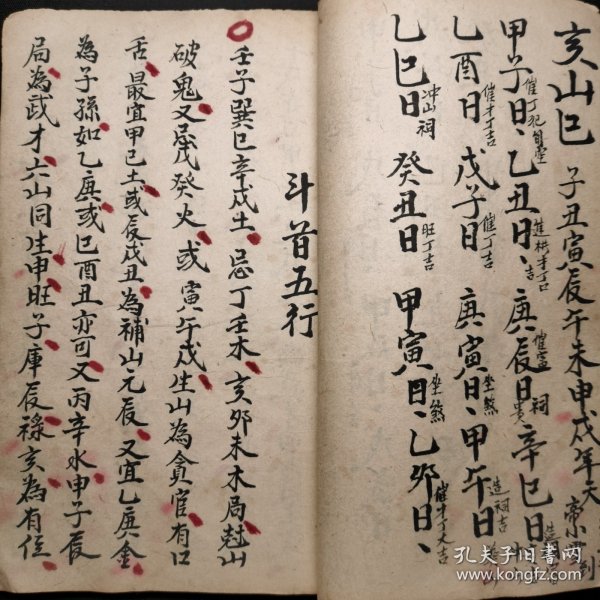 亥山巳 子丑寅辰午未申戌年天帝
甲子日、乙丑日、庚辰日、辛巳日、
催丁 進 丁口吉 催富 祠
乙酉日 戊子日 庚寅日、甲午日
催才丁吉 催丁吉 坐煞 造祠吉
乙巳日 癸丑日 甲寅日、乙卯日、
冲山 祠 旺丁吉 坐煞 催才丁大吉
斗首五行
壬子巽巳辛戌土、忌丁壬木、亥卯未木局尅山
破鬼又忌戊癸火、或寅午戌生山為貪官有口
舌最宜甲巳土或辰戌丑為補山元辰、又宜乙庚金
為子孫如乙庚或巳酉丑亦可又丙辛水申子辰
局為武才六山同生申旺子庫辰祿亥為有位
孔夫子旧书网
www.kongfz.com